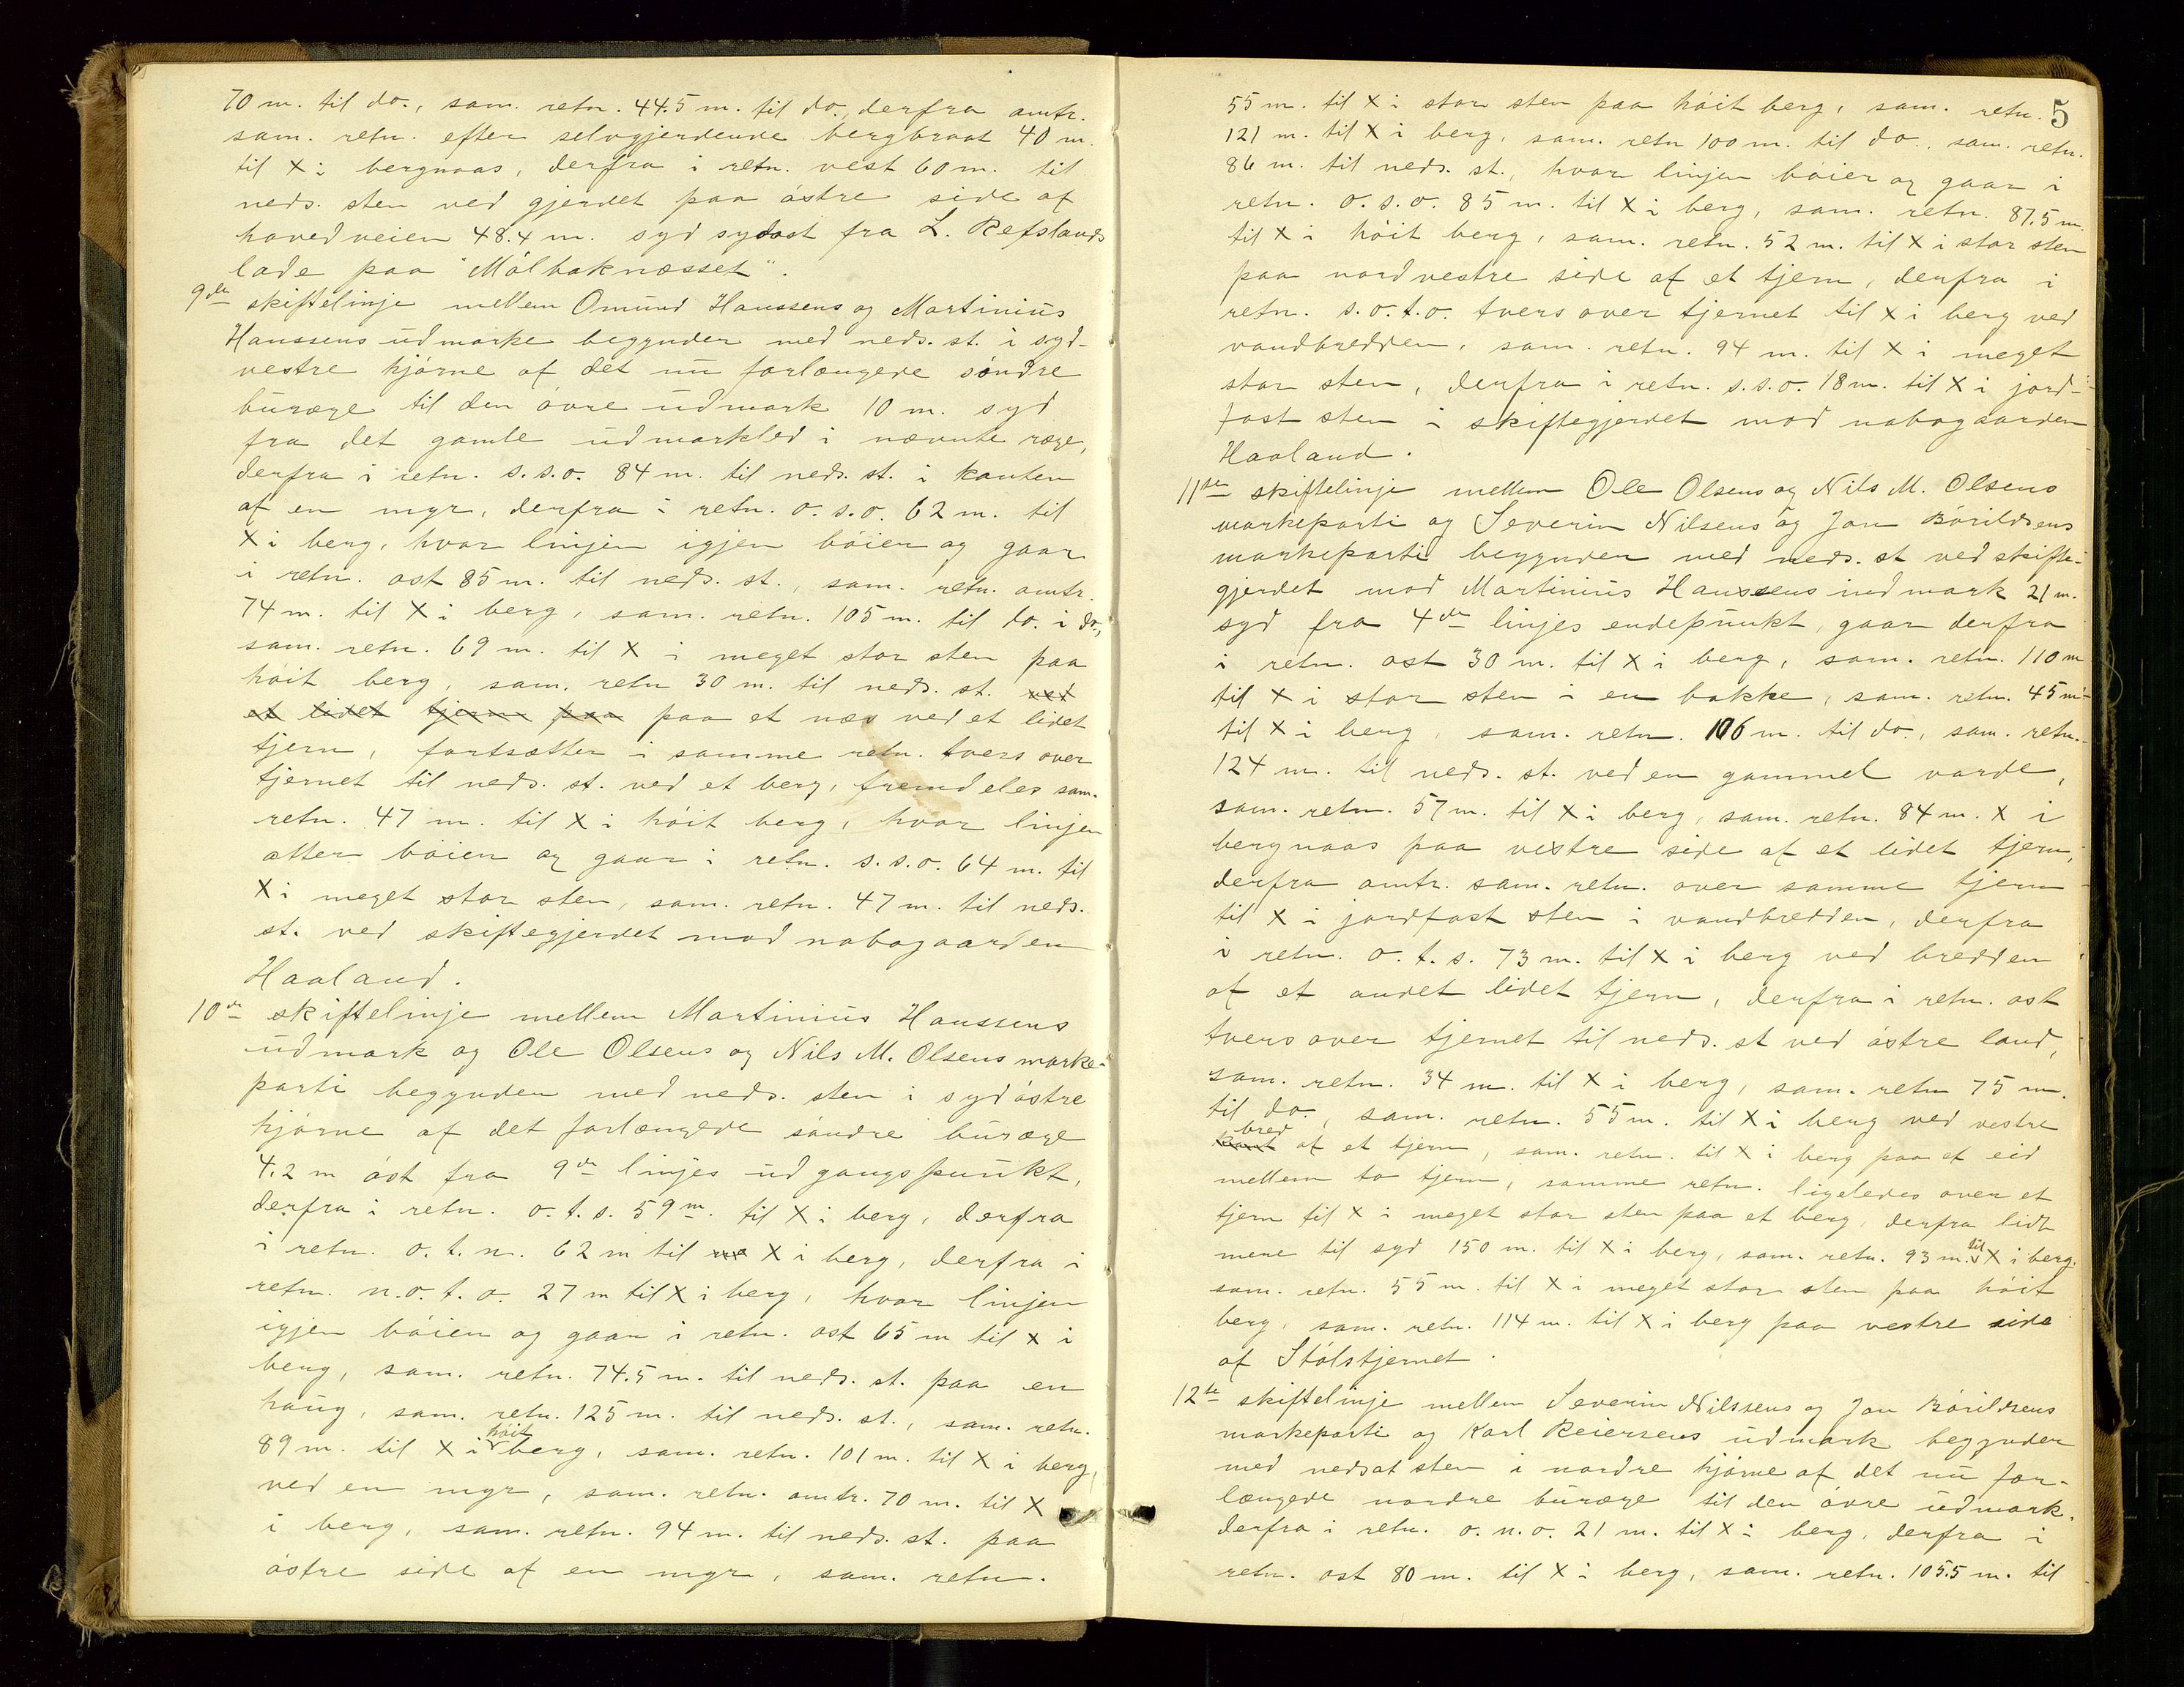 70 m. til do., sam. retn. 44.5 m. til do., derfra omtr.
sam. retn. efter selvgjerdende bergbraat 40 m.
til X i bergnaas, derfra i retn. vest 60 m. til
neds. sten ved gjerdet paa östre side af
hovedveien 48.4 m. syd sydost fra L. Refslands
lade paa "Mölbaknæsset".
9de skiftelinje mellem Omund Hanssens og Martinius
Hanssens udmarke begynder med neds. st. i syd-
vestre hjörne af det nu forlængede söndre
buræge til den övre udmark 10 m. syd
fra det gamle udmarkled i nævnte ræge,
derfra i retn. s.s.o. 84 m. til neds. st. i kanten
af en myr, derfra i retn. o.s.o. 62 m. til
X i berg, hvor linjen igjen böier og gaar
i retn. ost 85 m. til neds. st., sam. retn. omtr.
74 m. til X i berg, sam. retn. 105 m. til do. i do.,
sam. retn. 69 m. til X i meget stor sten paa
höit berg, sam. retn 30 m. til neds. st. ved
et lidet tjern paa paa et næs ved et lidet
tjern, fortsætter i samme retn. tvers over
tjernet til neds. st. ved et berg, fremdeles sam.
retn. 47 m. til X i höit berg, hvor linjen
atter böier og gaar i retn. s.s.o. 64 m. til
X i meget stor sten, sam. retn. 47 m. til neds.
st. ved skiftegjerdet mod nabogaarden
Haaland.
10de skiftelinje mellem Martinius Hanssens
udmark og Ole Olsens og Nils M. Olsens marke-
parti begynder med neds. sten i sydöstre
hjörne af det forlængede söndre buræge
4.2 m öst fra 9de linjes udgangspunkt,
derfra i retn. o.t.s. 59 m. til X i berg, derfra
i retn. o.t.n. 62 m til X i berg, derfra i
retn. n.o.t.o. 27 m til X i berg, hvor linjen
igjen böier og gaar i retn. ost 65 m til X i
berg, sam. retn. 74.5 m. til neds. st. paa en
haug, sam. retn. 125 m. til neds. st., sam. retn.
89 m. til X i höit berg, sam. retn. 101 m. til X i berg,
ved en myr, sam. retn. omtr. 70 m. til X
i berg, sam. retn. 94 m. til neds. st. paa
östre side af en myr, sam. retn.
5
55 m. til X i stor sten paa höit berg, sam. retn.
121 m. til X i berg, sam. retn 100 m. til do., sam. retn.
86 m. til neds. st., hvor linjen böier og gaar i
retn. o.s.o. 85 m. til X i berg, sam. retn. 87.5 m.
til X i höit berg, sam. retn. 52 m. til X i stor sten
paa nordvestre side af et tjern, derfra i
retn. s.o.t.o. tvers over tjernet til X i berg ved
vandbredden, sam. retn. 94 m. til X i meget
stor sten, derfra i retn. s.s.o. 18 m. til X i jord-
fast sten i skiftegjerdet mod nabogaarden
Haaland.
11te skiftelinje mellem Ole Olsens og Nils M. Olsens
markeparti og Severin Nilsens og Jon Börildsens
markeparti begynder med neds. st ved skifte-
gjerdet mod Martinius Hanssens indmark 21 m.
syd fra 4de linjes endepunkt, gaar derfra
i retn. ost 30 m. til X i berg, sam. retn. 110 m
til X i stor sten i en bakke, sam. retn. 45 m
til X i berg, sam. retn. 106 m. til do., sam. retn.
124 m. til neds. st. ved en gammel varde,
sam. retn. 57 m. til X i berg, sam. retn. 84 m. X i
bergnaas paa vestre side af et lidet tjern,
derfra omtr. sam. retn. over samme tjern
til X i jordfast sten i vandbredden, derfra
i retn. o.t.s. 73 m. til X i berg ved bredden
af et andet lidet tjern, derfra i retn. ost
tvers over tjernet til neds. st ved östre land,
sam. retn. 34 m. til X i berg, sam. retn 75 m.
til do., sam. retn. 55 m. til X i berg ved vestre
kant bred af et tjern, sam. retn. til X i berg paa et eid
mellem to tjern, samme retn. ligeledes over et
tjern til X i meget stor sten paa et berg, derfra lidt
mere til syd 150 m. til X i berg, sam. retn. 93 m. til X i berg.
sam. retn. 55 m. til X i meget stor sten paa höit
berg, sam. retn. 114 m. til X i berg paa vestre side
af Stölstjernet.
12te skiftelinje mellem Severin Nilssens og Jon Börildsens
markeparti og Karl Reiersens udmark begynder
med nedsat sten i nordre hjörne af det nu for-
længede nordre buræge til den övre udmark.
derfra i retn. o.n.o. 21 m. til X i berg, derfra i
retn. ost 80 m. til X i berg, sam. retn. 105.5 m. til